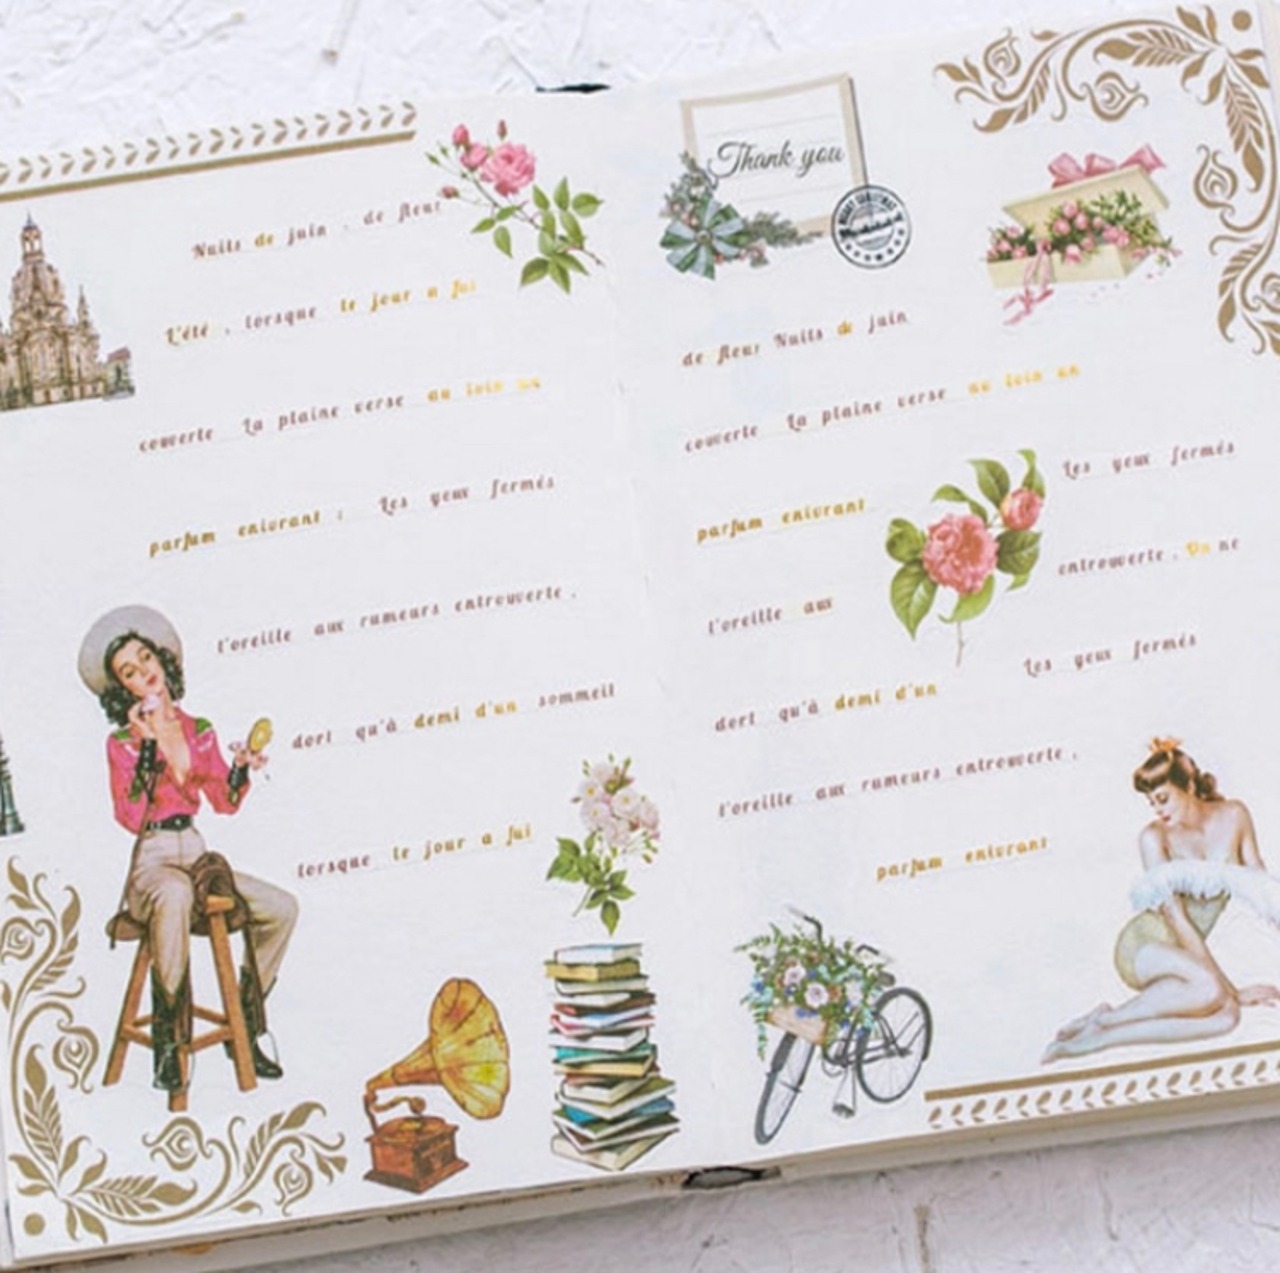 Nuits de juin . de fleur
L'été , lorsque le jour a fui
couverte La plaine verse au loin un
parfum enivrant ; Les yeux fermés
l'oreille aux rumeurs entrouverte ,
dort qu'à demi d'un sommeil
lorsque le jour a fui
Thank you
de fleur Nuits de juin
couverte La plaine verse au loin un
parfum enivrant Les yeux fermés
l'oreille aux entrouverte , On ne
dort qu'à demi d'un Les yeux fermés
l'oreille aux rumeurs entrouverte ,
parfum enivrant